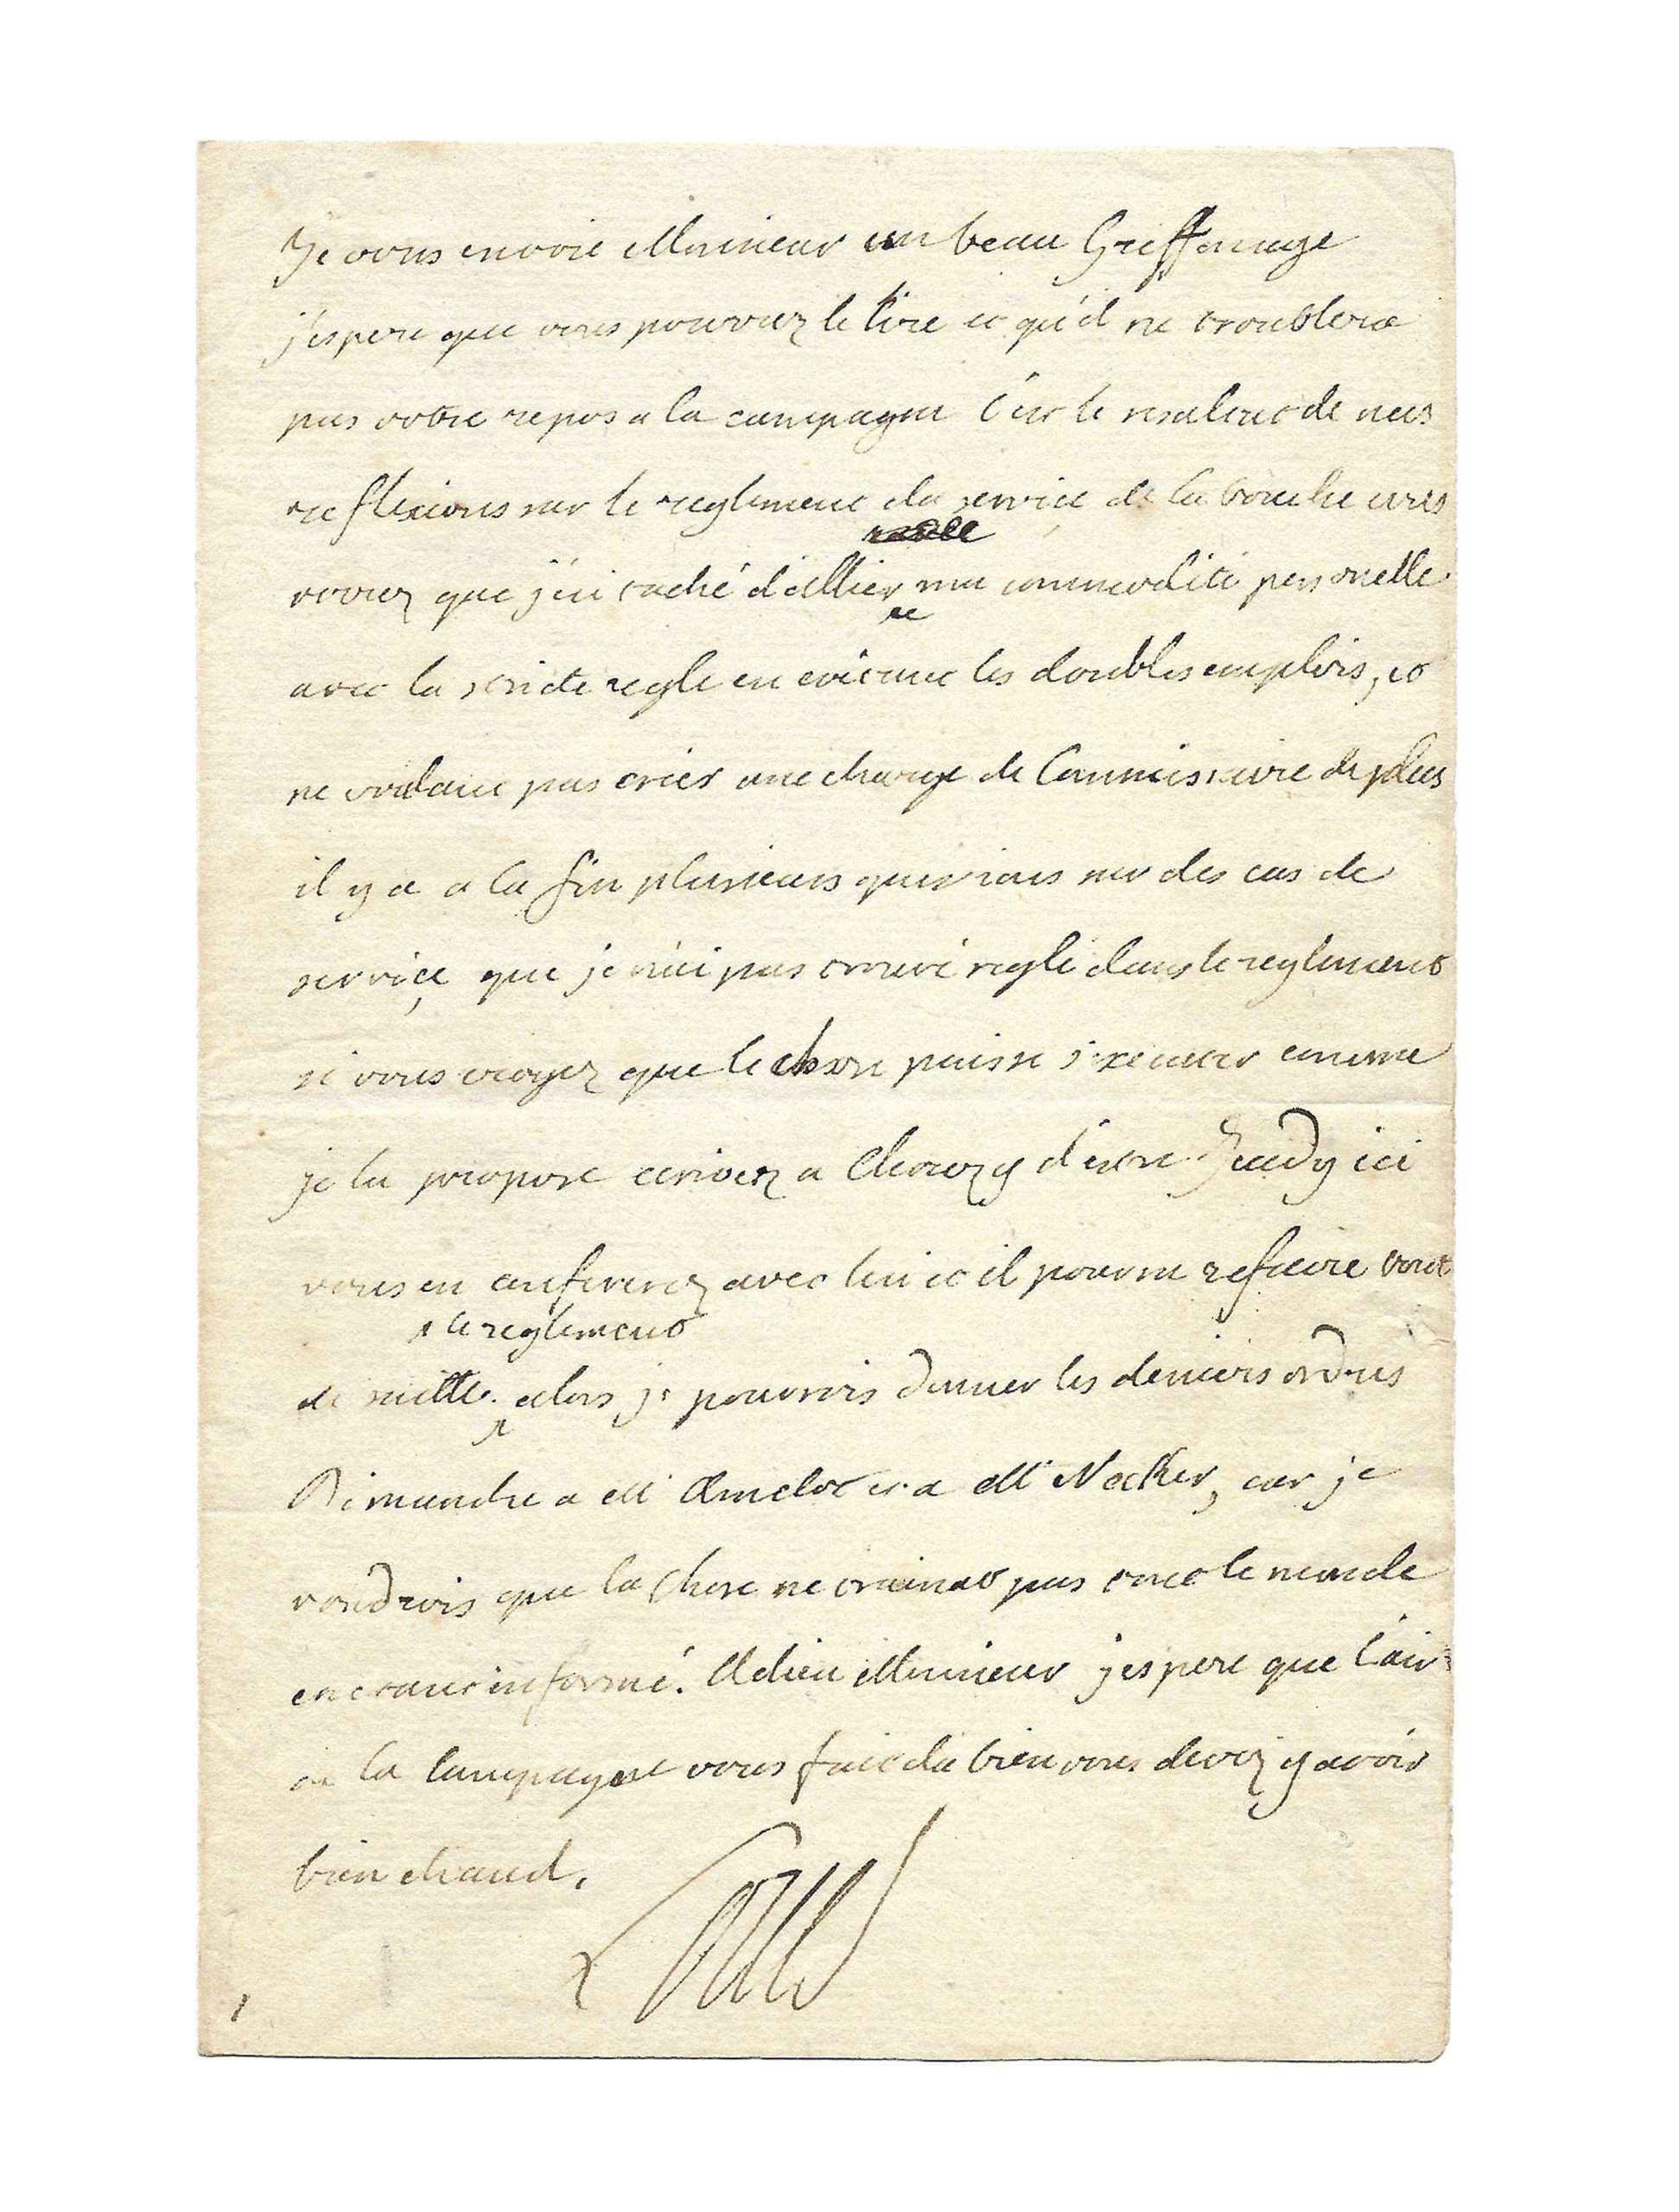 Je vous envoie Monsieur un beau Griffonage
j'espere que vous pourrez le lire et qu'il ne troublera
pas votre repos a la campagne c'est le resultat de nos
reflexions sur le reglement du service de la bouche vous
verrez que j'ai taché d'allier ma commodité personelle
avec la stricte regle en evitant les doubles emplois, et
ne voulant pas créer une charge de Commissaire de plus
il y a a la fin plusieurs questions sur des cas de
service que je n'ai pas trouvé reglé dans le reglement
si vous croyez que la chose puisse s'executer comme
je la propose ecrivez a Chouzy d'estre Jeudy ici
vous en conférerez avec lui et il pourra refaire tout
le reglement
de suitte. alors je pourrois donner les derniers ordres
Dimanche a Mr Amelot et a Mr Necker, car je
voudrois que la chose ne trainat pas tout le monde
en etant informé. Adieu Monsieur j'espere que l'air
de la campagne vous fait du bien vous devez y avoir
bien chaud.
Louis
1